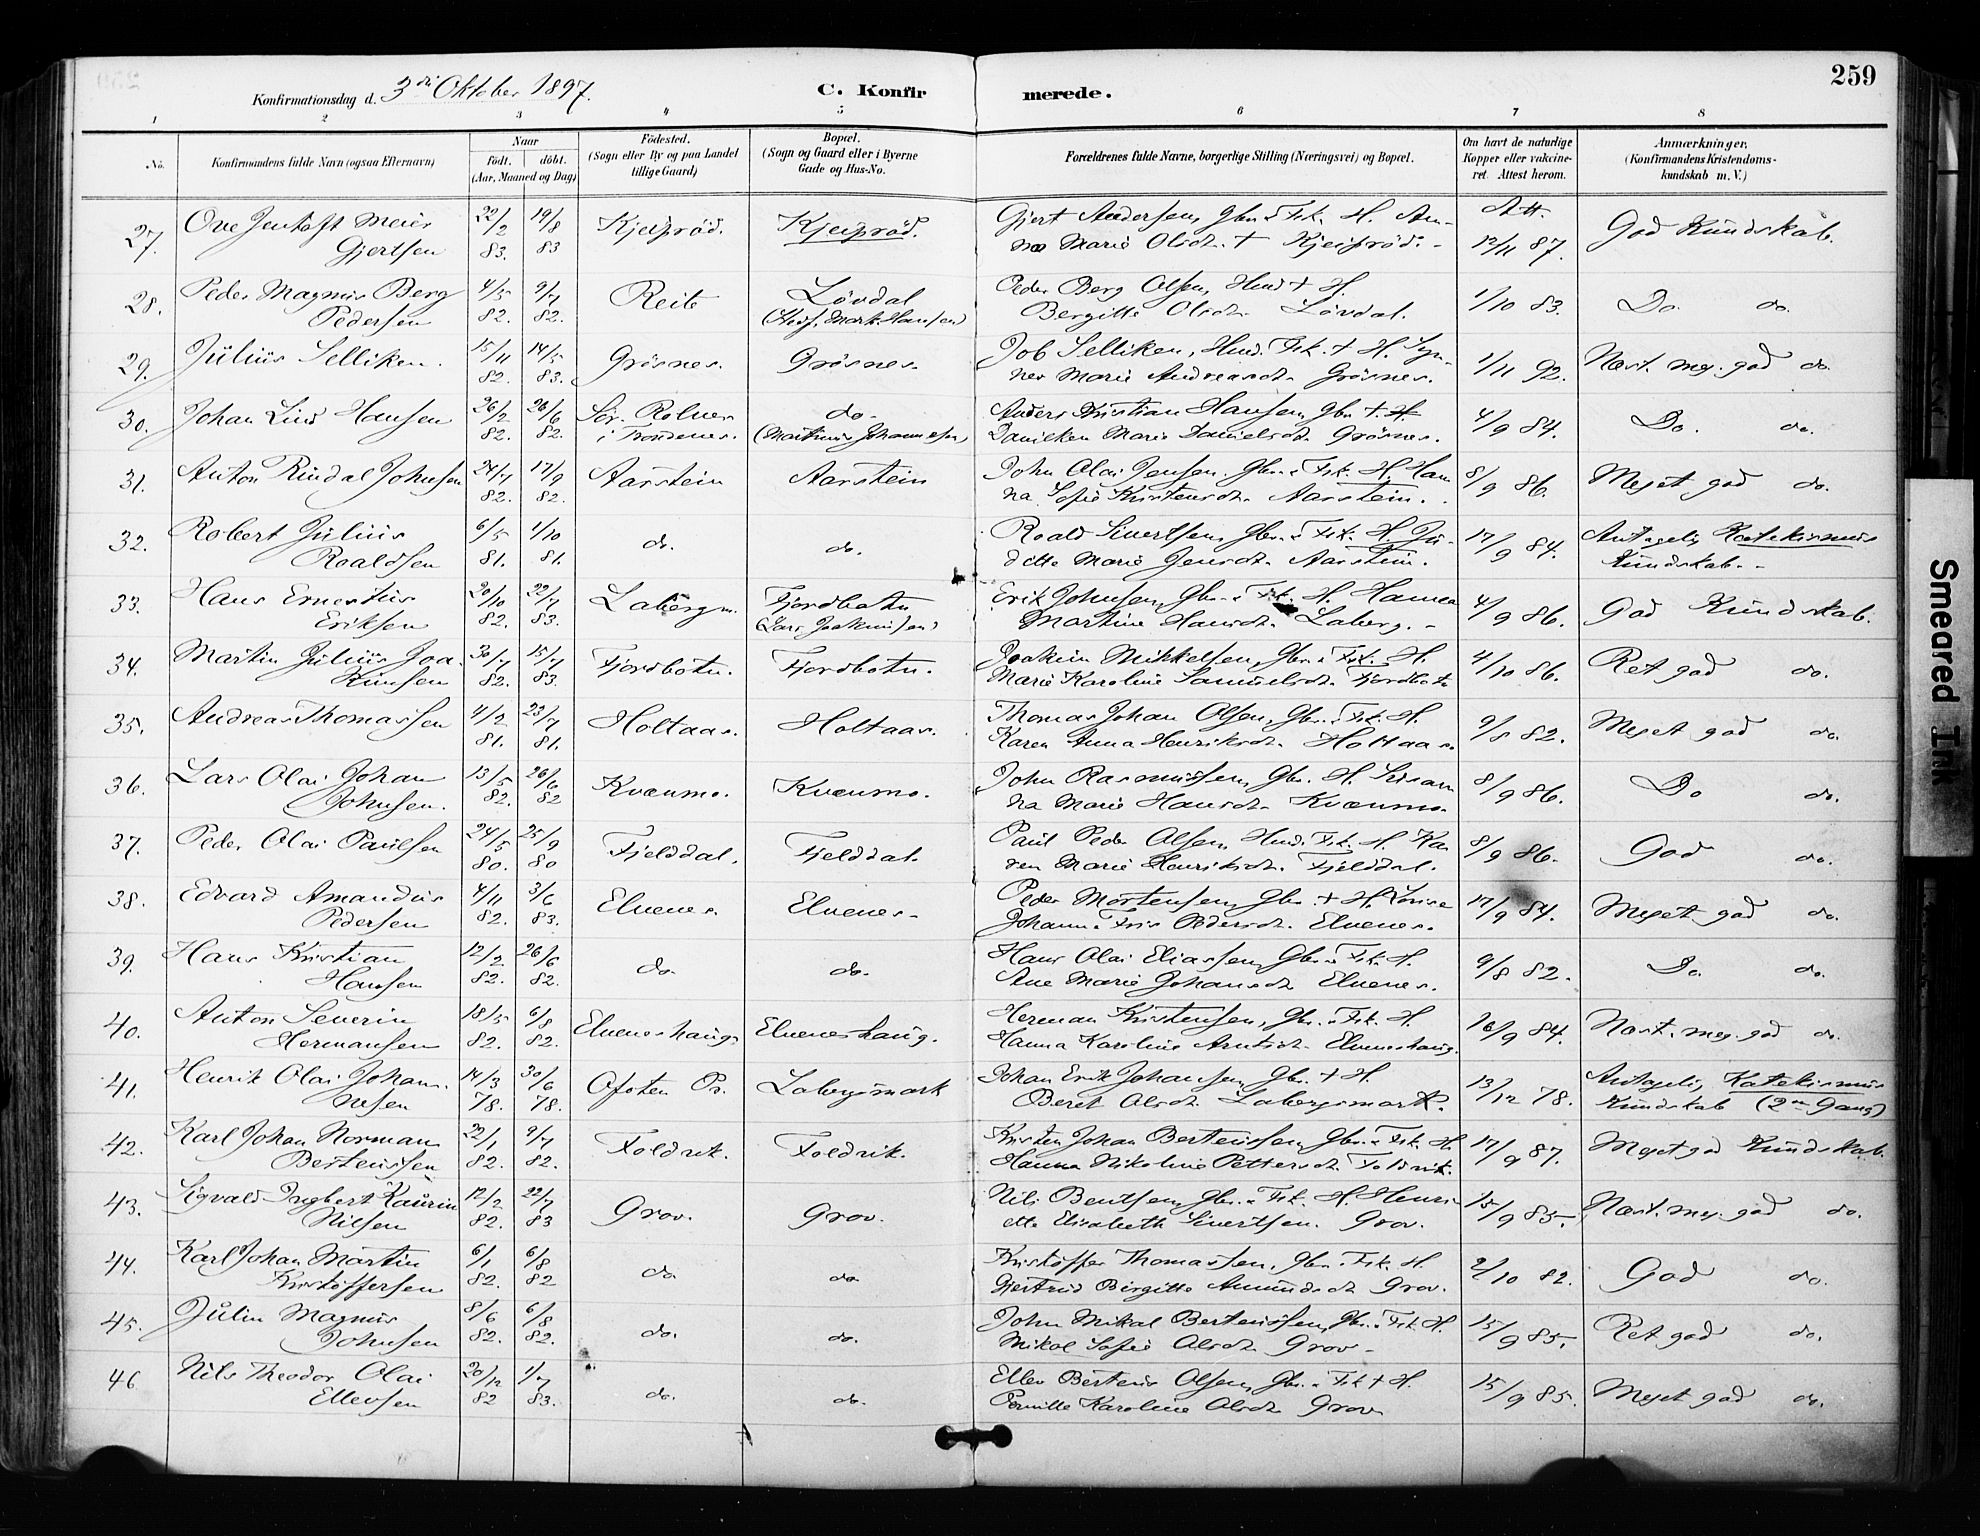 259
Konfirmationsdag d. 3di Oktober 1897. C. Konfirmerede.
1 2 3 4 5 6 7 8
No. Konfirmandens fulde Navn (ogsaa Efternavn) Naar født. døbt. (Aar, Maaned og Dag) Födested. (Sogn eller By og paa Landet tillige Gaard) Bopæl. (Sogn og Gaard eller i Byerne Gade og Hus-No. Forældrenes fulde Navne, borgerlige Stilling (Næringsvei) og Bopæl. Om havt de naturlige Kopper eller vaccineret. Attest herom. Anmærkninger, (Konfirmandens Kristendomskundskab m. V.)
27. Ove Jentoft Meier 22/2 19/8 Kjeiprød. Kjeiprød. Gjert Andersen, Gbr. & Fsk. H. An- Att. God Kundskab.
Gjertsen 83. 83 na Marie Olsdt. + Kjeiprød. 12/11 87.
28. Peder Magnus Berg 4/5 9/7 Reite Løvdal Peder Berg Olsen, Husd + H. 1/10 83. Do. do.
Pedersen 82. 82. Bergitte Olsdt. Løvdal.
29. Julius Selliken. 15/11 14/5 Grøsnes. Grøsnes. Job Selliken, Husd. Fsk. + H. Syn- 1/11 92. Næst. meg. god do.
82. 83. nev Marie Andreasdt. Grøsnes.
30. Johan Lind Hansen 26/2 26/6 Sør. Rolnes do. Anders Kristian Hansen, Gbr. + H. 4/9 84. Do. do.
82. 82. i Trondenes. (Martinus Johannesen) Daniken Marie Danielsdt. Grøsnes.
31. Anton Rindal Johnsen 24/7 17/9 Aarstein Aarstein John Olai Jensen. Gbr. & Fsk. H. Han- 8/9 86. Meget god do.
82. 82. na Sofie Kristensdt. Aarstein.
32. Robert Julius 6/5 1/10 do. do. Roald Sivertsen, Gbr. & Fsk. H. Ju- 17/9 84. Antagelig Katekismus
Roaldsen 81. 81. ditte Marie Jensdt. Aarstein. Kundskab.
33. Hans Ernestius 20/10 22/7 Laberg. Fjordbotn Erik Johnsen, Gbr. & Fsk. H. Hanna 4/9 86. God Kundskab.
Eriksen 82. 83. (Lars Joakimsen) Martine Hansdt. Laberg.
34. Martin Julius Joa- 30/7 15/7 Fjordbotn. Fjordbotn. Joakim Mikkelsen, Gbr. & Fsk. H. 4/10 86. Ret god do.
kimsen 82. 83. Marie Karoline Samuelsdt. Fjordbotn
35. Andreas Thomassen 4/2 23/7 Holtaas. Holtaas. Thomas Johan Olsen, Gbr. & Fsk. H. 9/8 82. Meget god do.
81. 81. Karen Anna Henriksdt. Holtaas.
36. Lars Olai Johan 13/5 26/6 Kvænmo. Kvænmo. John Rasmussen, Gbr. H. Susan- 8/9 86. Do do.
Johnsen. 82. 82 na Marie Hansdt. Kvænmo.
37. Peder Olai Paulsen 24/5 25/9 Fjelddal. Fjelddal. Paul Peder Olsen, Husd. Fsk. H. Ka- 8/9 86. God do.
80. 80 ren Marie Henriksdt. Fjelddal.
38. Edvard Amandus 4/11 3/6 Elvenes. Elvenes. Peder Mortensen, Gbr. + H. Lovise 17/9 84. Meget god do.
Pedersen 82. 83. Johanna Fris Pedersdt. Elvenes.
39. Hans Kristian 12/2 26/6 do. do. Hans Olai Eliassen, Gbr. & Fsk. H. 9/8 82. Do. do.
Hansen 82. 82. Ane Marie Johansdt. Elvenes.
40. Anton Severin 18/5 6/8 Elveneshaug. Elveneshaug. Herman Kristensen, Gbr. & Fsk. H. 16/9 84. Næst. meg. god do.
Hermansen 82. 82. Hanna Karoline Arntsdt. Elveneshaug.
41. Henrik Olai Johan- 14/3 30/6 Ofoten Pr. Labergsmark Johan Erik Johansen, Gbr. + H. 13/12 78. Antagelig Katekismus
nesen 78. 78. Beret Olsdt. Labergsmark. Kundskab (2den Gang)
42. Karl Johan Norman 22/1 9/7 Foldvik. Foldvik. Kristen Johan Berteussen, Gbr. & Fsk. H. 17/9 87. Meget god Kundskab.
Berteussen 82. 82. Hanna Nikoline Pettersdt. Foldvik.
43. Sigvald Ingbert Kaurin 12/2 22/7 Grov. Grov. Nils Bentsen, Gbr. & Fsk. H. Henri- 15/9 85. Næst. meg. god do.
Nilsen 82. 83 ette Elisabeth Sivertsen. Grov.
44. Karl Johan Martin 6/1 6/8 do do Kristoffer Thomassen, Gbr. Fsk. H. 2/10 82. God do.
Kristoffersen 82. 82 Gjertrud Birgitte Amundsdt Grov.
45. Julin Magnus 8/6 6/8 do. do. John Mikal Berteussen, Gbr. & Fsk. H. 15/9 85. Ret god do.
Johnsen 82. 82. Mikol Sofie Olsdt. Grov.
46 Nils Theodor Olai 20/12 1/7 do. do. Ellev Berteus Olsen, Gbr. & Fsk + H. 15/9 85. Meget god do.
Ellevsen 82 83. Pernille Karoline Olsdt. Grov
Smeared Ink